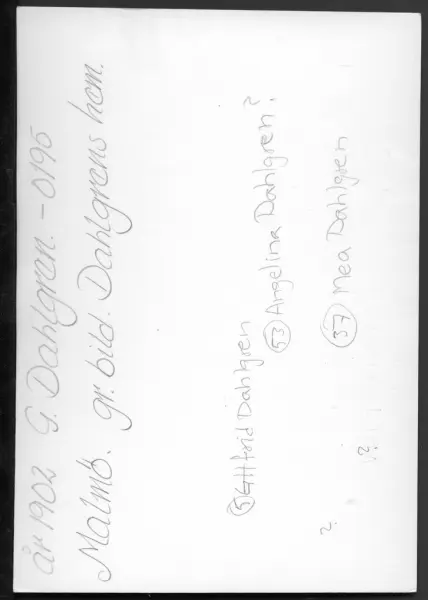 år 1902 G. Dahlgren. - 0195
Malmö. gr. bild. Dahlgrens hem.
⑤ Gttfrid Dahlgren
㊾ Angelina Dahlgren?
㊲ Mea Dahlgren
?
?